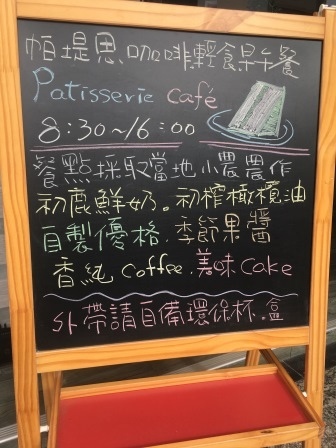 帕堤思咖啡輕食早午餐
Patisserie café
8:30~16:00
餐點採取當地小農農作
初鹿鮮奶。初榨橄欖油
自製優格.季節果醬
香純coffee.美味cake
外帶請自備環保杯.盒